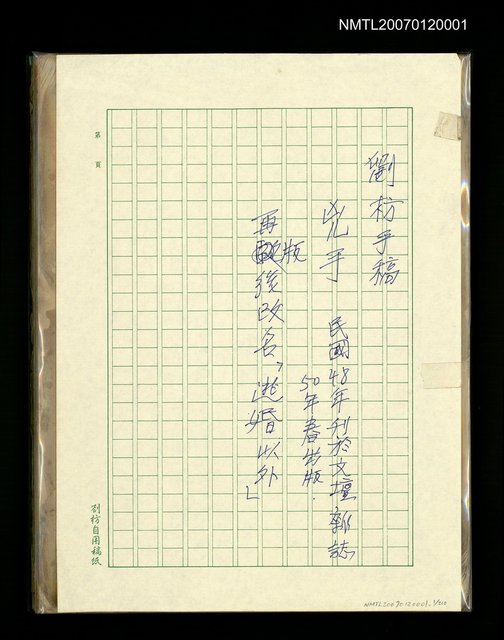 NMTL20070120001
第 頁
劉枋手稿
兇手 民國48年刊於文壇雜誌
50年春出版.
再版後改名「逃婚以外」
劉枋自用稿紙
NMTL20070120001-1/210